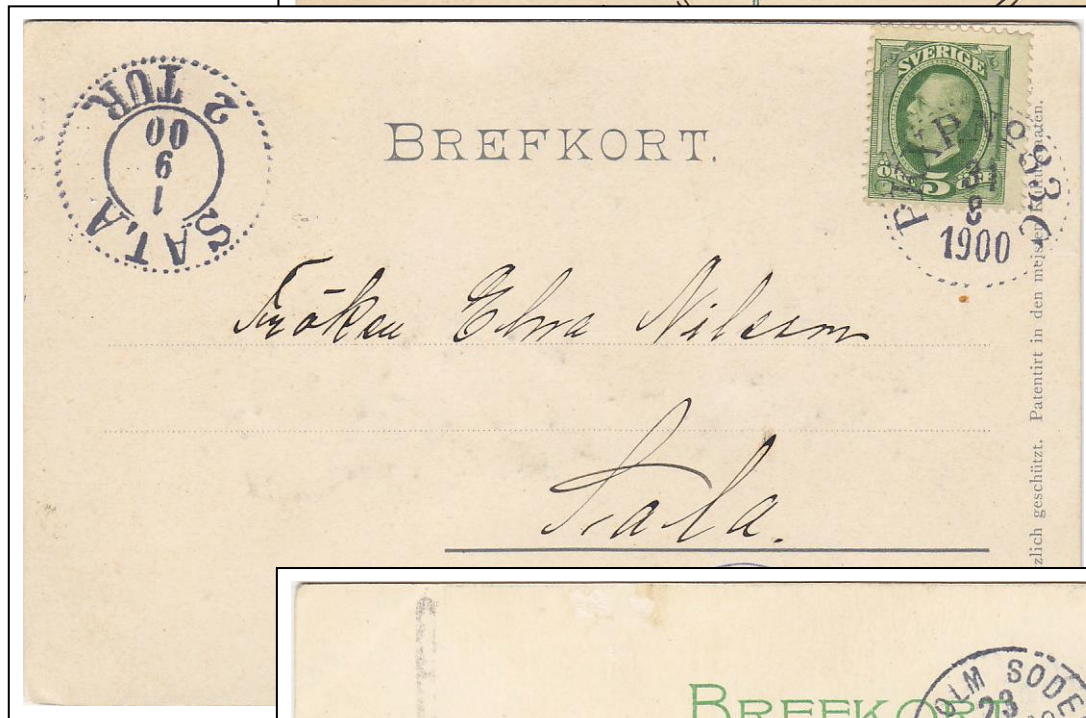 SALA
1
9
00
2 TUR
BREFKORT.
SVERIGE
5 ÖRE
PKXP Nº 83C
31
8
1900
Fröken Elna Nilsson
Sala.
zlich geschützt. Patentirt in den meisten
BREFKORT
OLM SÖDE
23